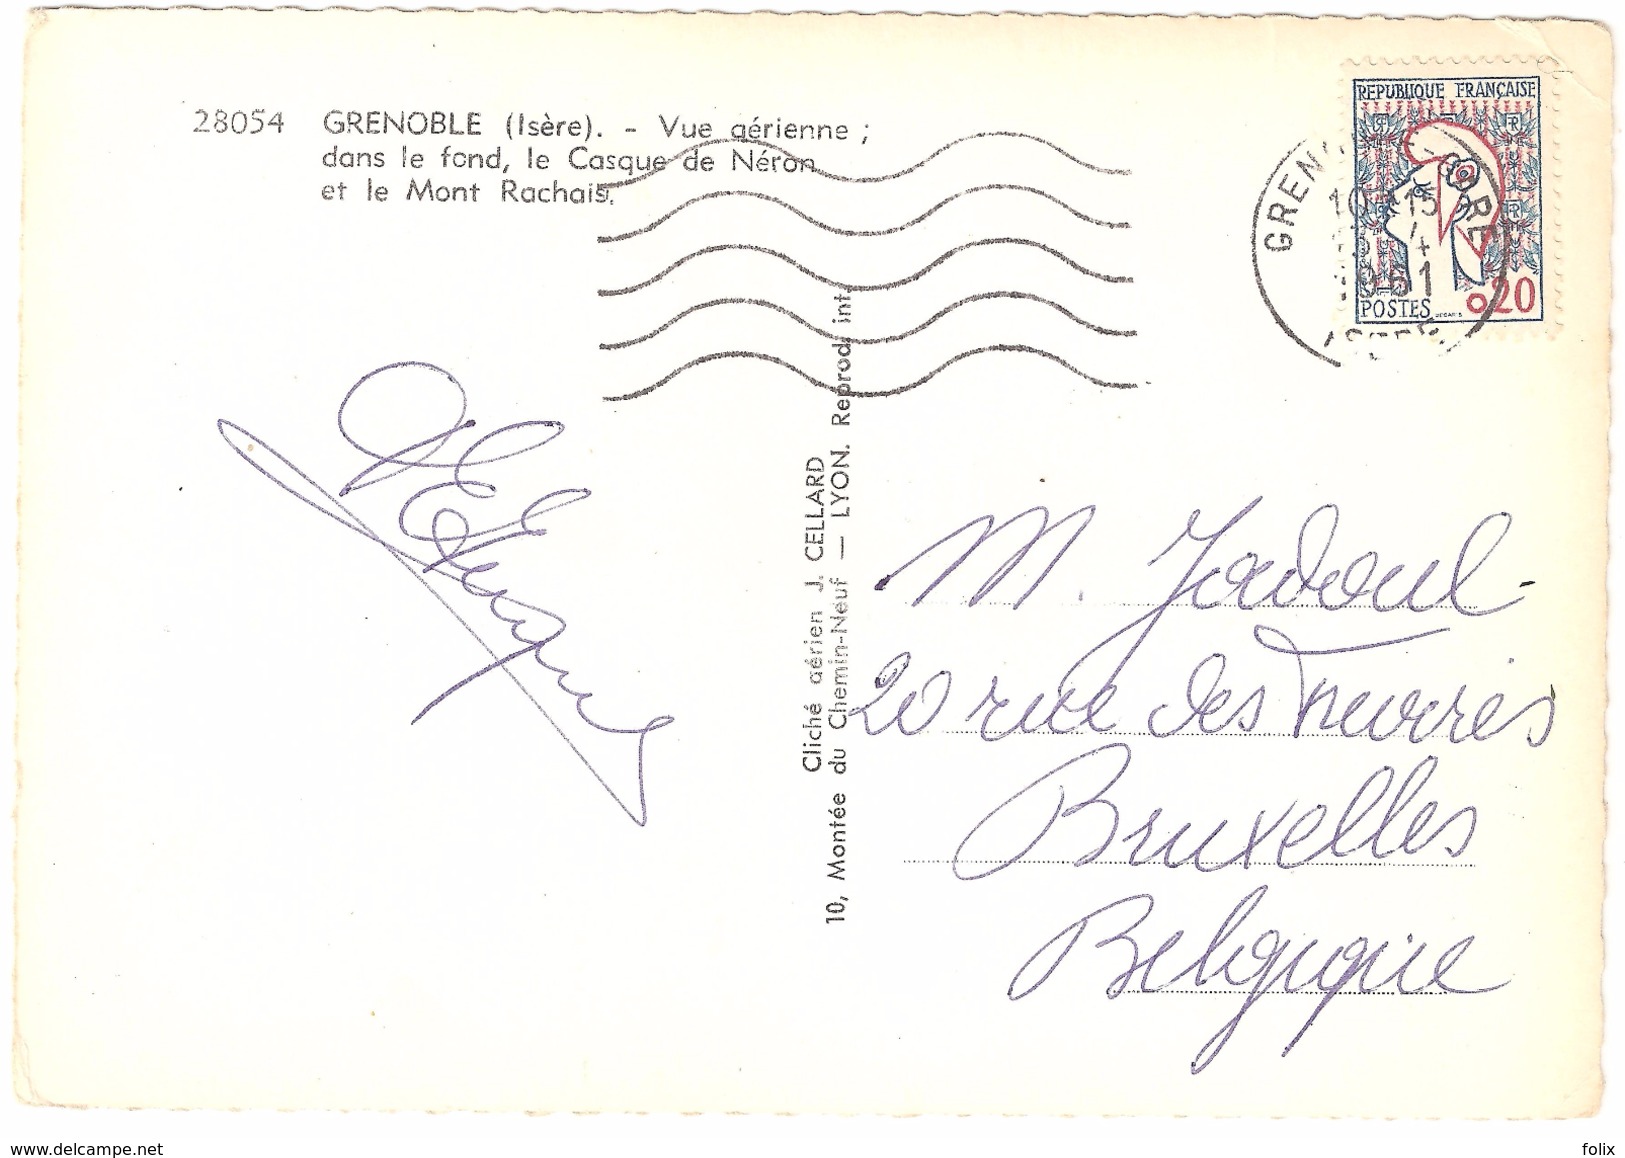 28054 GRENOBLE (Isère). - Vue aérienne ;
dans le fond, le Casque de Néron
et le Mont Rachais.
REPUBLIQUE FRANÇAISE
POSTES
0,20
1961
Cliché aérien J. CELLARD
10, Montée du Chemin-Neuf — LYON. Reprod. int.
M. Jadoul
20 rue des
Bruxelles
Belgique
www.delcampe.net
felix